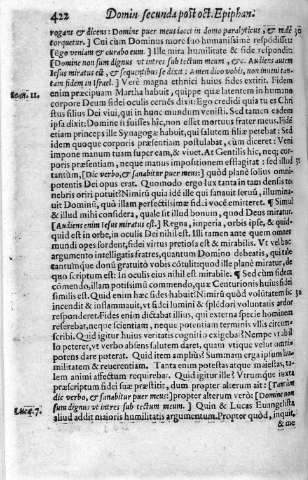 422 Domin secunda post oct. Epiphan.
rogans & dicens: Domine puer meus iacet in domo paralyticus, & malè
torquetur.] Cui cùm Dominus nutu suo humanissimè respõdisset:
[Ego veniam & curabo eum.] Ille mira humilitate & fide respondit
[Domine non sum dignus vt intres sub tectum meum, &c. Audiens autem
Iesus miratus est, & sequentibus se dixit: Amen dico vobis, non inueni tan-
tam fidem in Israel.] Verè magna ethnici huius fides extitit. Fidem
Ioan. 11. enim præcipuam Martha habuit, quippe quæ latentem in humano
corpore Deum fidei oculis cernēs dixit: Ego credidi quia tu es Chri
stus filius Dei viui, qui in hunc mundum venisti. Sed tamen eadem
ipsa dixit: Domine si fuisses hîc, non esset frater meus mortuus. Fidē
etiam princeps ille Synagogæ habuit, qui salutem filiæ petebat: Sed
idem quoque corporis præsentiam postulabat, cùm diceret: Veni
impone manum tuam super eam, & viuet. At Gentilis hic, neq; cor-
poris præsentiam, neque manus impositionem efflagitat: sed illud
tantùm, [Dic verbo, & sanabitur puer meus:] quòd planè solius omni-
potentis Dei opus erat. Quomodo ergo lux tanta in tam densis te-
nebris oriri potuit? Nimirū quia idē ille qui sanauit seruū, illumina-
uit Dominū, quò illam perfectissimæ fidei vocē emitteret. ¶ Simul
& illud mihi considera, quale sit illud bonum, quod Deus miratur.
[Audiens enim Iesus miratus est.] Regna, imperia, orbis ipse, & quid-
quid est in orbe, in oculis Dei nihil est. Illi tamen ante quem omnes
mundi opes sordent, fidei virtus pretiosa est & mirabilis. Vt vel hac
argumento intelligatis fratres, quantum Domino debeatis, qui tale
tantumque donū gratuitò vobis cōtulit: quod ille planè miratur, de
quo scriptum est: In oculis eius nihil est mirabile. ¶ Sed cùm fidem
cōmendo, illam potissimùm commendo, quæ Centurionis huius fidei
similis est. Quid enim hæc fides habuit? Nimirū quòd violata homi-
nem incendit & inflammauit, vt fidei lumini & splēdori voluntatis ardor
responderet. Fides enim dictabat illius, qui externa specie hominem
referebat, neque scientiam, neque potentiam terminis vllis circum-
scribi. Quid igitur huius veritatis cognitio exigebat? Nempe vt nihil
Io peteret, vt verbo absens salutem daret, quam vtique velut omni-
potens dare poterat. Quid item ampliùs? Summam erga ipsum hu-
militatem & reuerentiam. Tanta enim potestas atque maiestas, ta-
lem animi affectum requirebat. Quid igitur ille? Vtrumque iuxta
præscriptum fidei suæ præstitit, dum propter alterum ait: [Tantùm
dic verbo, & sanabitur puer meus:] propter alterum verò: [Domine non
Lucæ. 7. sum dignus vt intres sub tectum meum.] Quin & Lucas Euangelista
aliud addit maioris humilitatis argumentum. Propter quòd, inquit,
& me